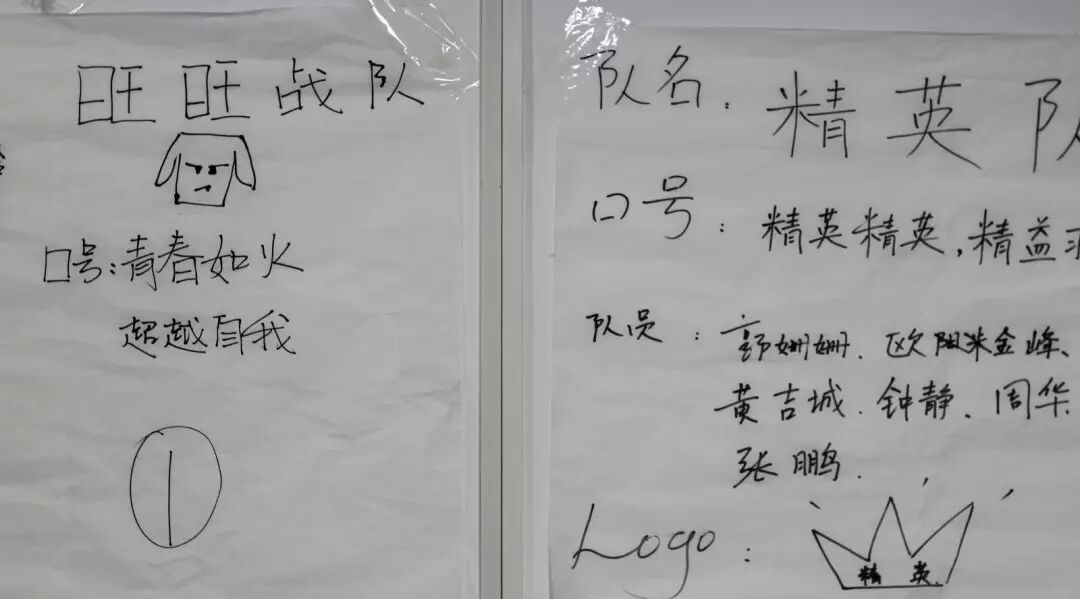 旺旺战队
口号:青春如火
超越自我
1
队名:精英队
口号:精英精英,精益
队员:郭姗姗、欧阳米金峰、
黄吉城、钟静、周华
张鹏.
Logo:
精英.